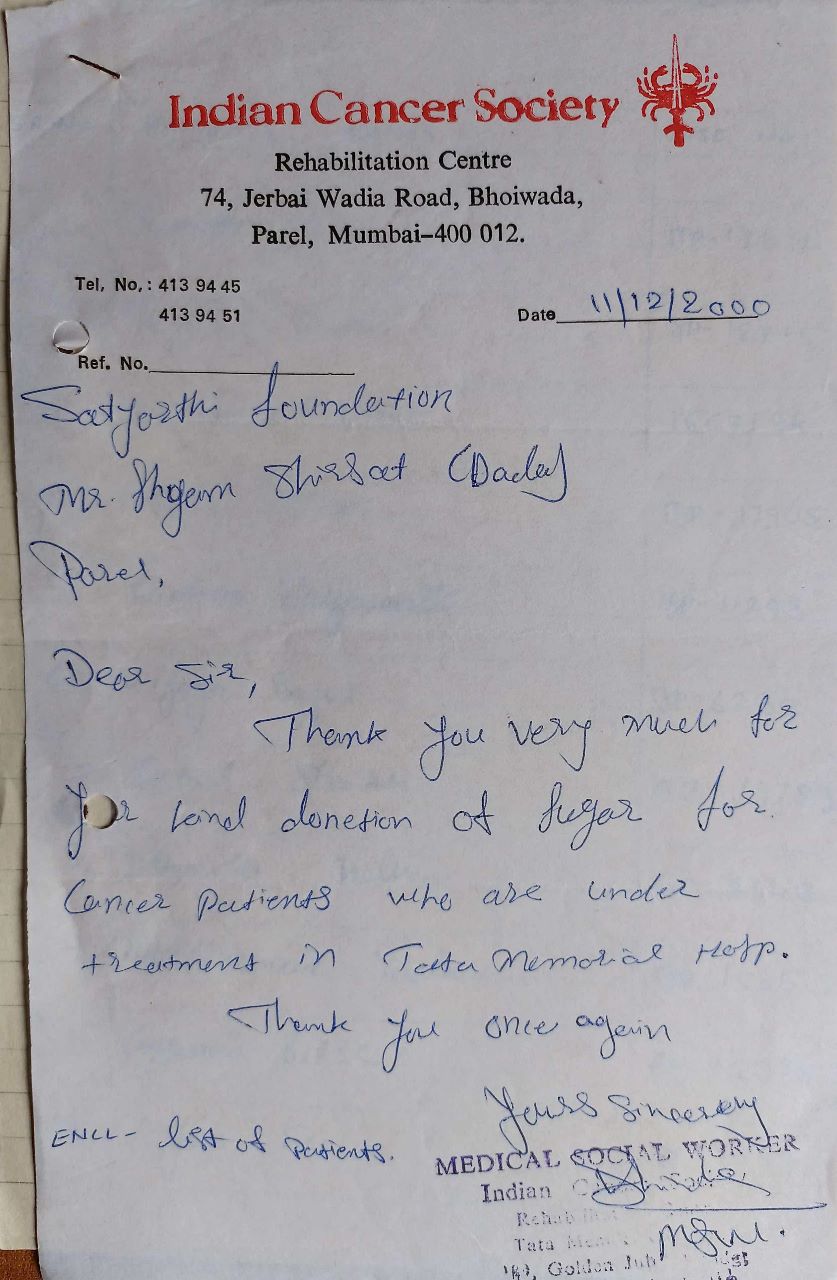 Indian Cancer Society
Rehabilitation Centre
74, Jerbai Wadia Road, Bhoiwada,
Parel, Mumbai–400 012.
Tel. No.: 413 94 45
413 94 51
Date 11/12/2000
Ref. No.
Satyarthi foundation
Mr. Shyam Shirsat (Dada)
Parel,
Dear Sir,
Thank you very much for
kind donation of Sugar for
Cancer patients who are under
treatment in Tata Memorial Hosp.
Thank you once again
Yours Sincerely
ENCL- list of patients.
MEDICAL SOCIAL WORKER
Indian
Tata
Golden